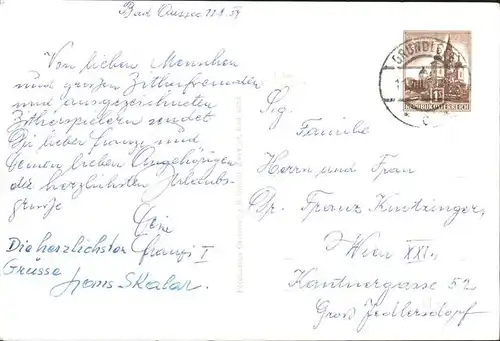 Bad Aussee 11.8.59
Von lieben Menschen
und großen Zitherfreunden
und ausgezeichneten
Zitherspielern sendet
Dir lieber Franz und
Deinen lieben Angehörigen
die herzlichsten Urlaubs-
grüße
Dein
Franzi I
Die herzlichsten
Grüsse
Hans Skalar.
GRUNDLSEE
REPUBLIK ÖSTERREICH
Familie
Herrn und Frau
Franz Knotzinger,
Wien XXI.,
Kantnergasse 52
Groß Jedlersdorf